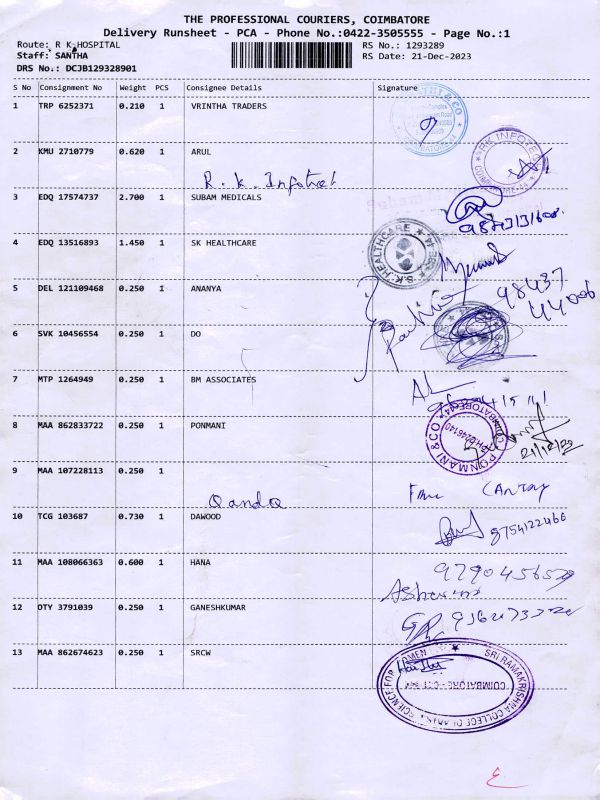 THE PROFESSIONAL COURIERS, COIMBATORE
Delivery Runsheet - PCA - Phone No.:0422-3505555 - Page No.:1
Route: R K HOSPITAL RS No.: 1293289
Staff: SANTHA RS Date: 21-Dec-2023
DRS No.: DCJB129328901
S No Consignment No Weight PCS Consignee Details Signature
1 TRP 6252371 0.210 1 VRINTHA TRADERS
2 KMU 2710779 0.620 1 ARUL
R.K. Infotech
RK INFOTECH
COIMBATORE-44
3 EDQ 17574737 2.700 1 SUBAM MEDICALS
4 EDQ 13516893 1.450 1 SK HEALTHCARE
S.K.HEALTHCARE
5 DEL 121109468 0.250 1 ANANYA
98437
44006
6 SVK 10456554 0.250 1 DO
7 MTP 1264949 0.250 1 BM ASSOCIATES
8 MAA 862833722 0.250 1 PONMANI
PONMANI & CO
COIMBATORE-44
21/12/23
9 MAA 107228113 0.250 1
10 TCG 103687 0.730 1 DAWOOD
8754122466
11 MAA 108066363 0.600 1 HANA
12 OTY 3791039 0.250 1 GANESHKUMAR
13 MAA 862674623 0.250 1 SRCW
SRI RAMAKRISHNA COLLEGE OF ARTS & SCIENCE FOR WOMEN